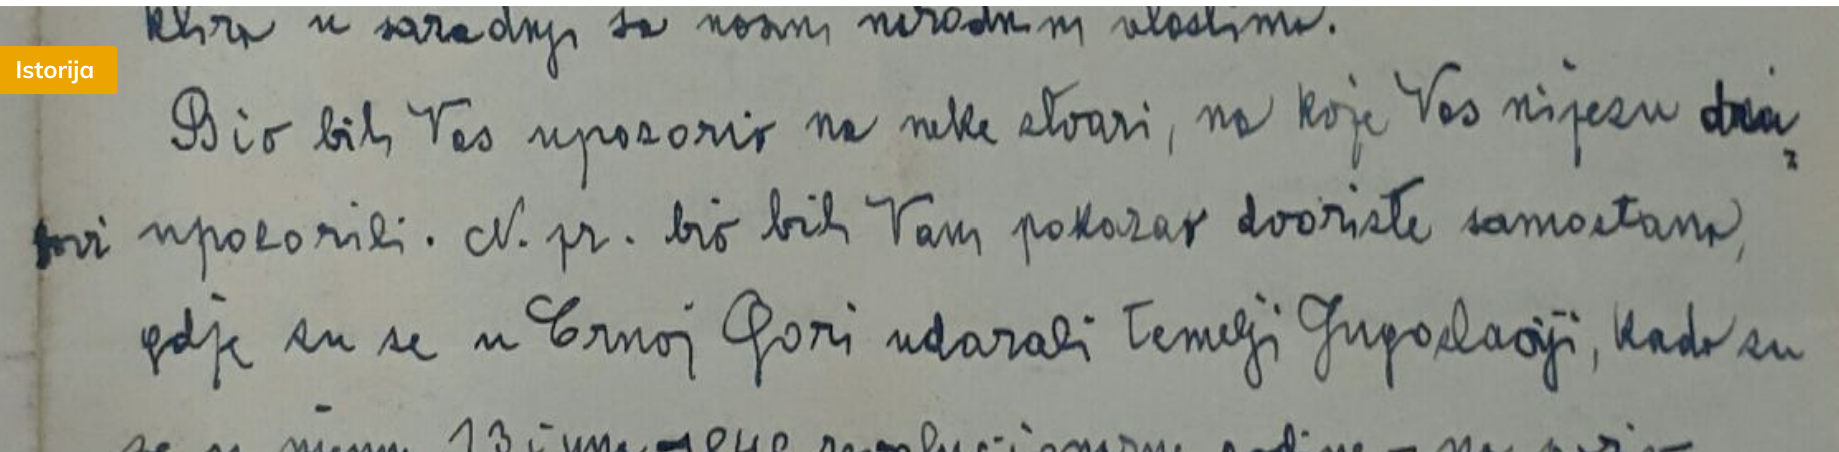 klira u saradnji sa novim narodnim vlastima.
Istorija
Bio bih Vas upozorio na neke stvari, na koje Vas nijesu
upozorili. N. pr. bio bih Vam pokazao dvorište samostana,
gdje su se u Crnoj Gori udarali temelji Jugoslaviji, kada su
se u njemu 13 juna 1848 revolucionarne godine -